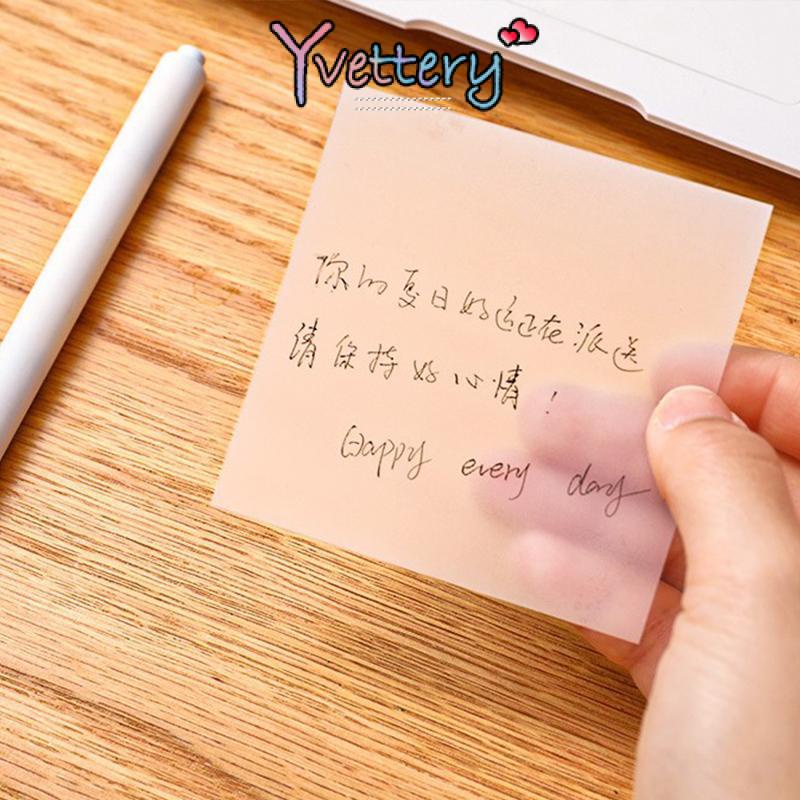 Yvettery
你的夏日好运正在派送
请保持好心情!
Happy every day